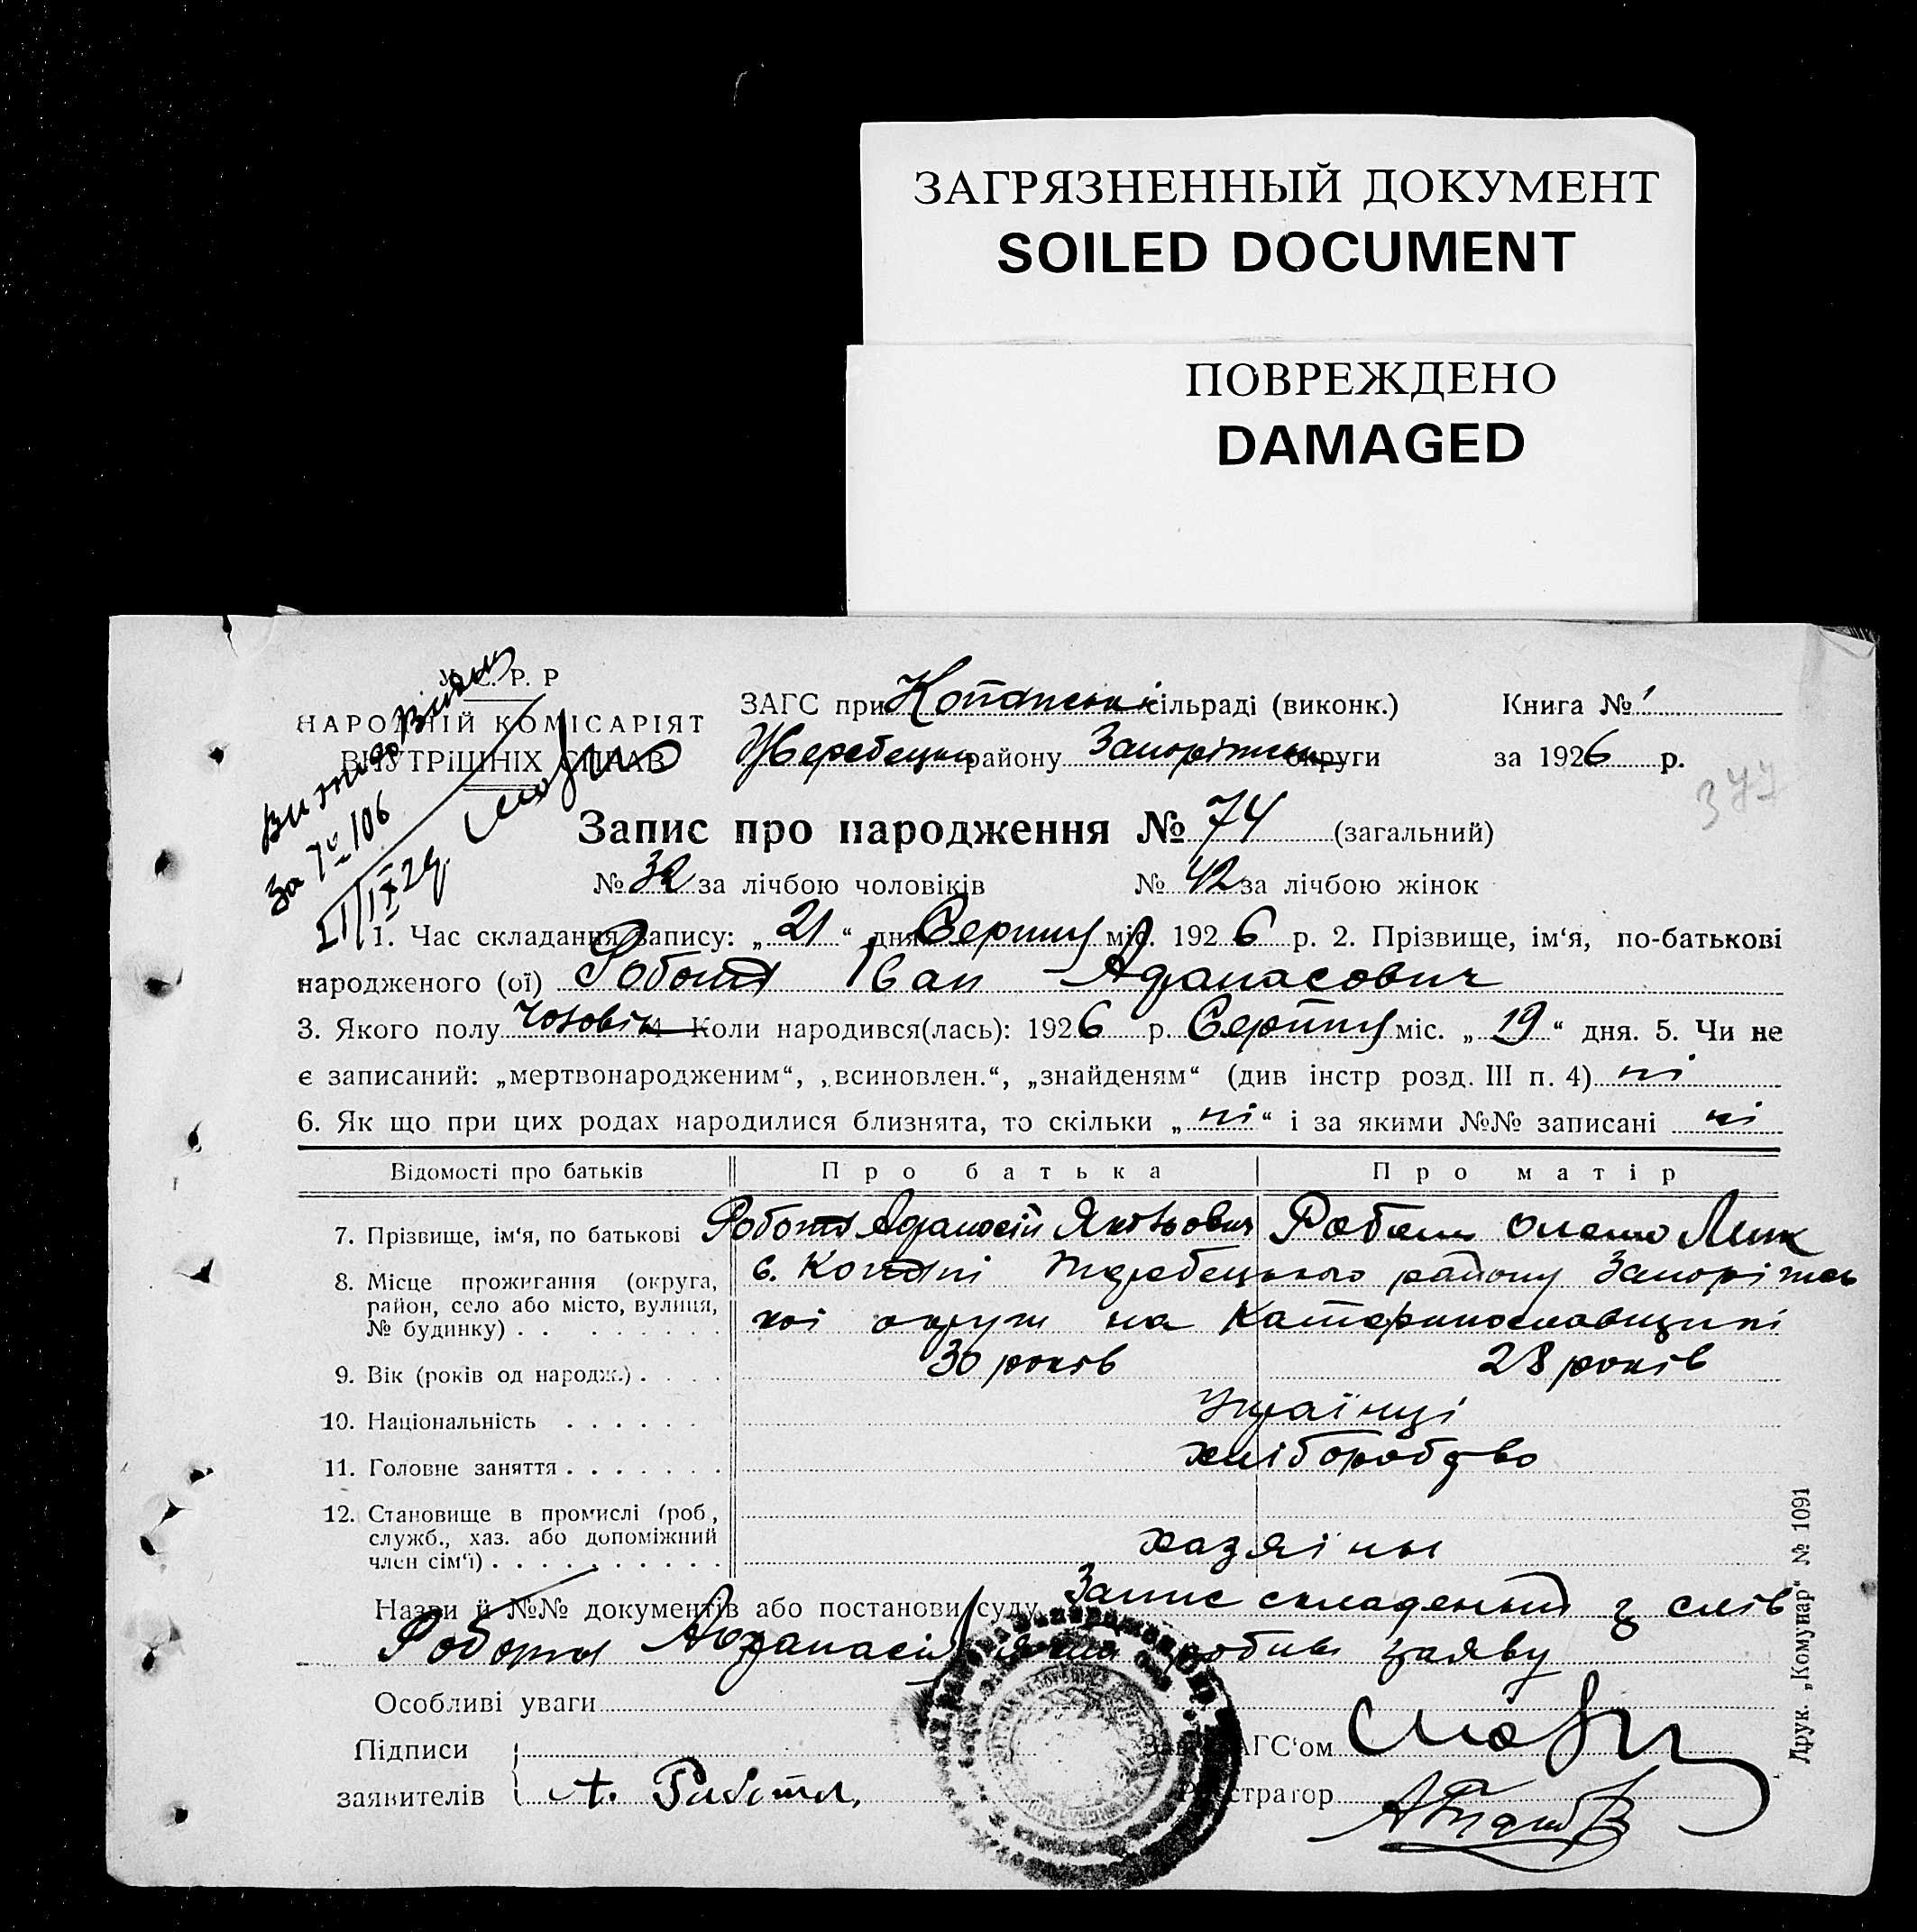 ЗАГРЯЗНЕННЫЙ ДОКУМЕНТ
SOILED DOCUMENT
ПОВРЕЖДЕНО
DAMAGED
У. С. Р. Р
НАРОДНІЙ КОМІСАРІЯТ
ВНУТРІШНІХ СПРАВ
За № 106
ЗАГС при Копанськ сільраді (виконк.) Книга № 1
Жеребецьк району Запоріжськ округи за 1926 р.
377
Запис про народження № 74 (загальний)
№ 32 за лічбою чоловіків № 42 за лічбою жінок
1. Час складання запису: „21“ дня Серпня міс. 1926 р. 2. Прізвище, ім‘я, по-батькові
народженого (ої) Робота Іван Афанасович
3. Якого полу Чоловік 4 Коли народився(лась): 1926 р. Серпня міс. „19“ дня. 5. Чи не
є записаний: „мертвонародженим“, „всиновлен.“, „знайденям“ (див інстр розд. III п. 4) ні
6. Як що при цих родах народилися близнята, то скільки „ні“ і за якими №№ записані ні
Відомості про батьків Про батька Про матір
7. Прізвище, ім‘я, по батькові Робота Афанасій Якольович Робота Олена
8. Місце проживання (округа, с. Копані Жеребецького району Запоріжсь
район, село або місто, вулиця,
№ будинку) . . кої округи на Катеринославщині
9. Вік (років од народж.) . . . . 30 років 28 років
10. Національність . . . . . . Українці
11. Головне заняття . . . . . . . хліборобство
12. Становище в промислі (роб,
служб., хаз. або допоміжний
член сім‘ї) . . . . . . . . . . хазяіни
Назви й №№ документів або постанови суду Запис складений з слів
Роботи Афанасія робив заяву
Особливі уваги
Підписи
заявителів А. Работа.
АГС‘ом
Реєстратор
Друк. „Комунар“ № 1091